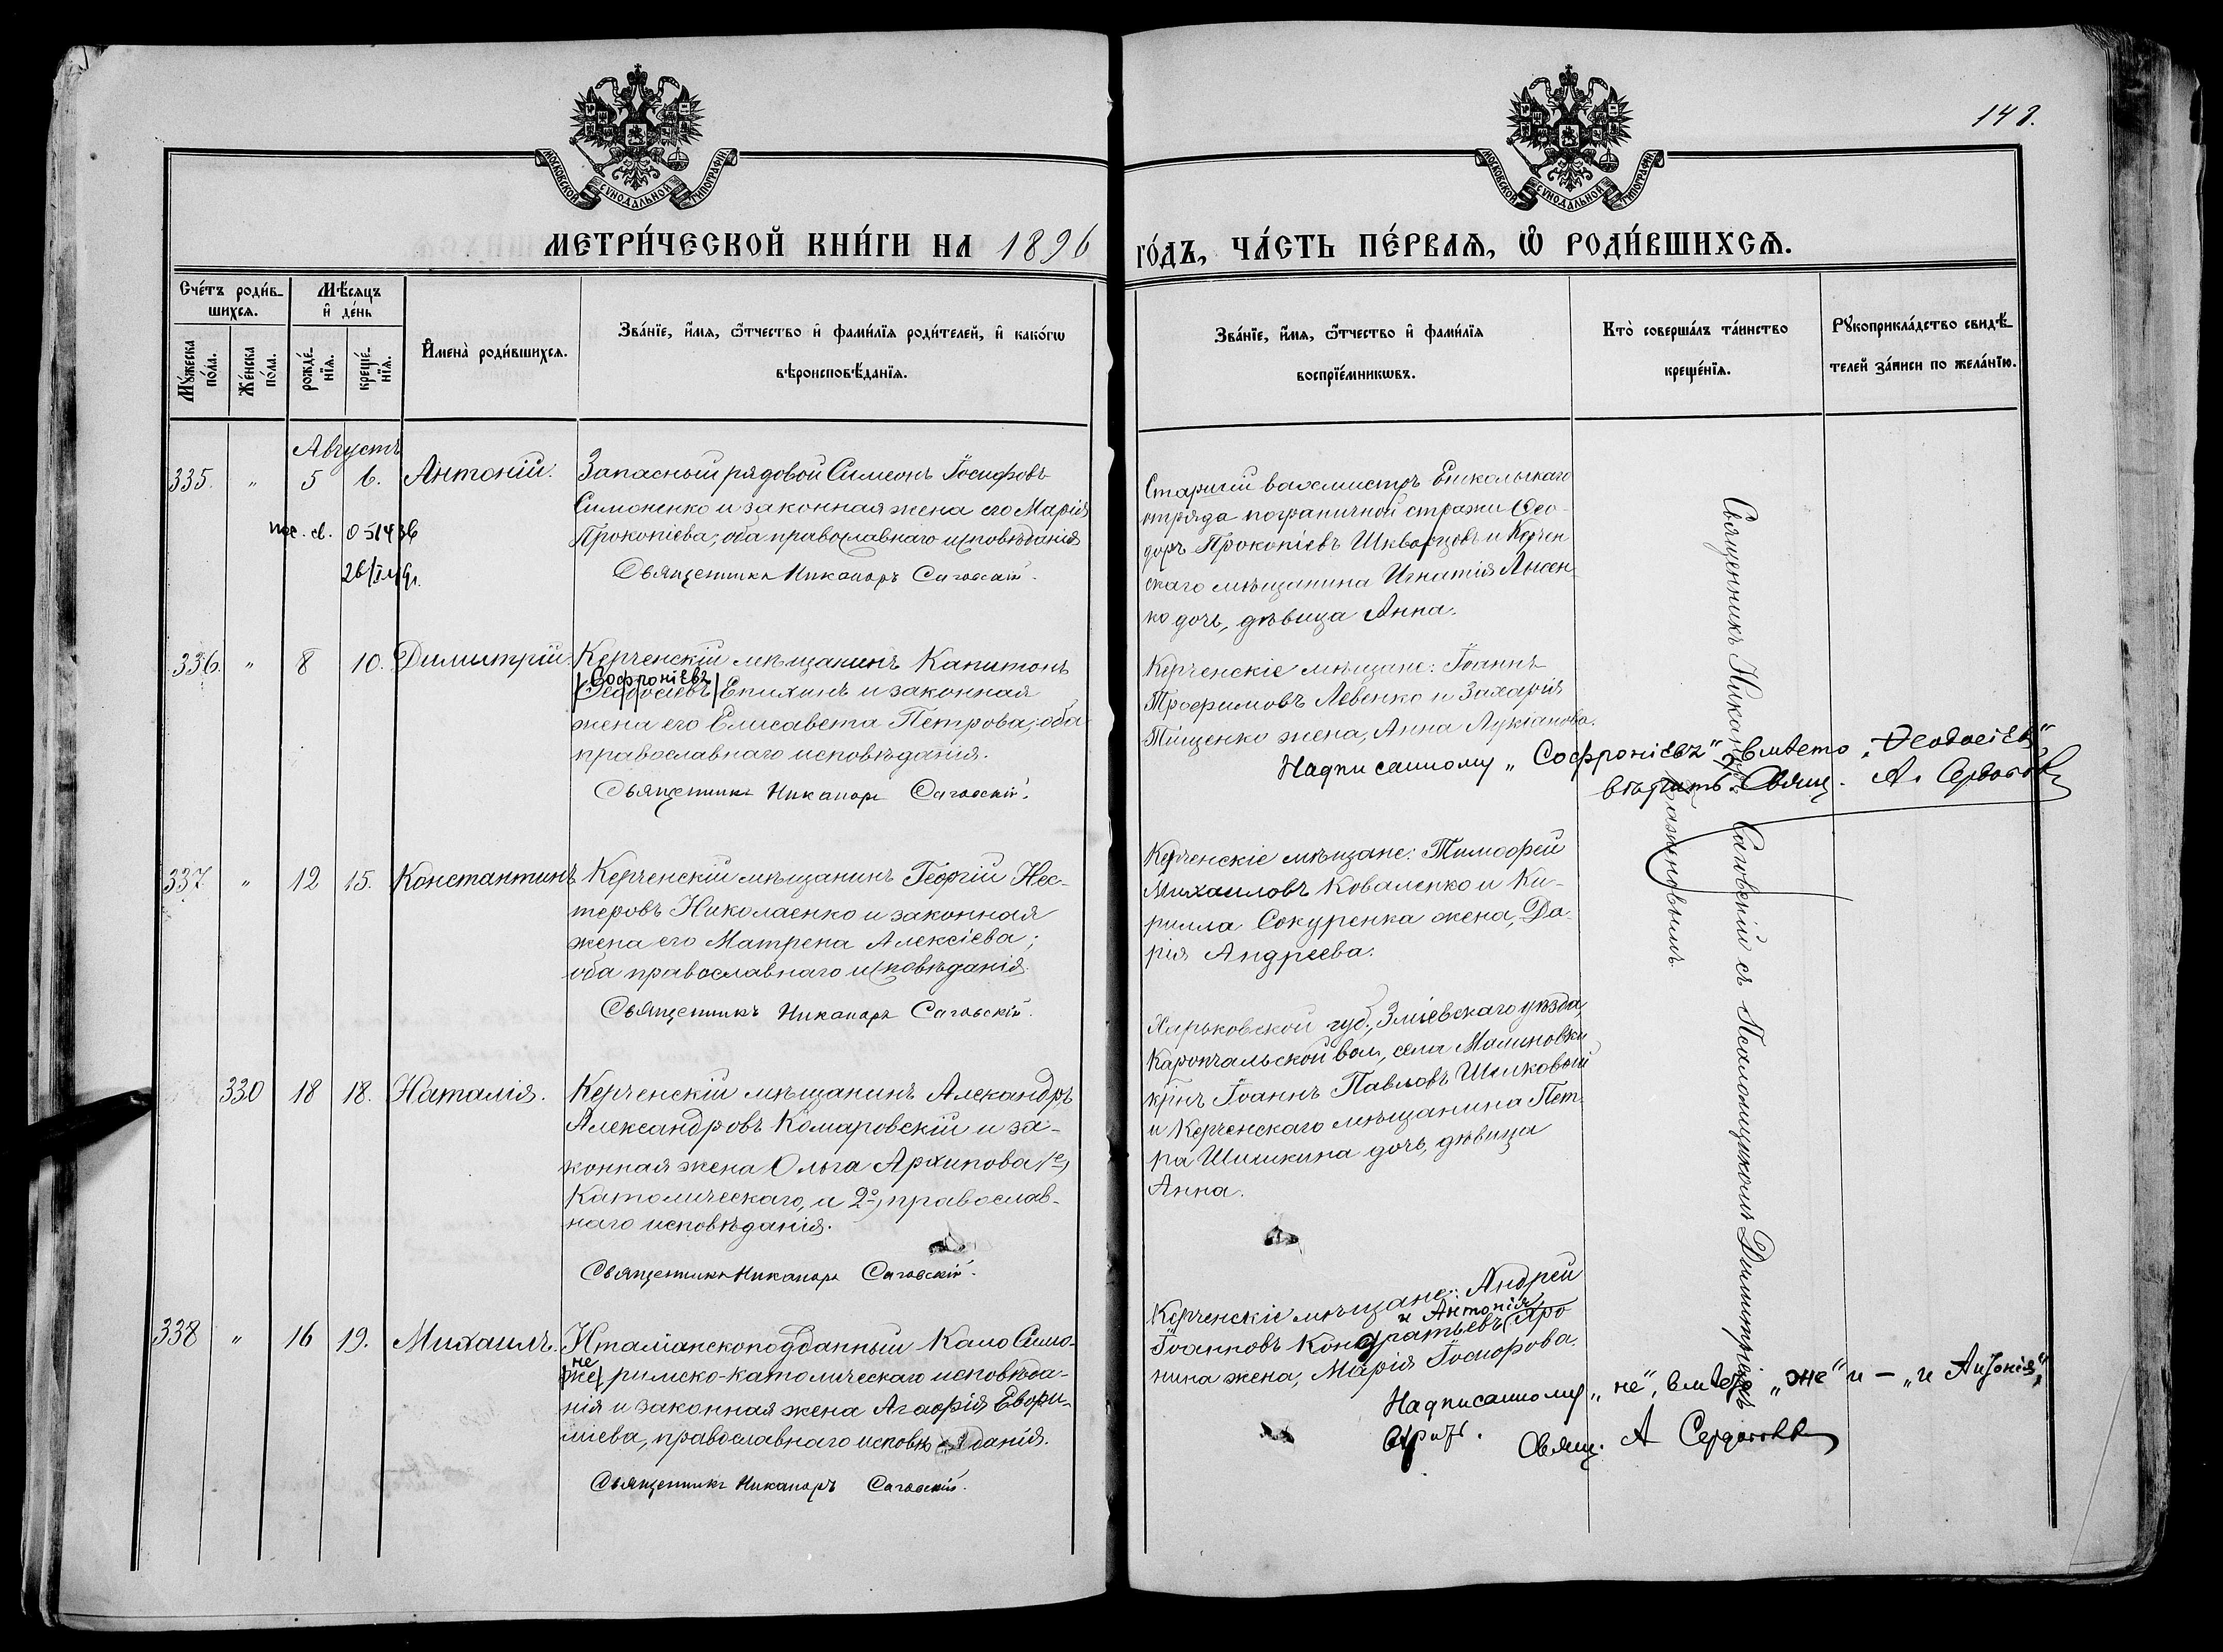 148.
МОСКОВСКОЙ СУНОДАЛЬНОЙ ТИПОГРАФІИ
МОСКОВСКОЙ СУНОДАЛЬНОЙ ТИПОГРАФІИ
МЕТРИ́ЧЕСКОЙ КНИ́ГИ НА 1896 ГО́ДЪ, ЧА́СТЬ ПЕ́РВАѦ, Ѡ҆ РОДИ́ВШИХСѦ.
Счетъ родив-
шихсѧ.
Мꙋжеска
пола.
Женска
пола.
Мѣсѧцъ
и день
рожде-
нїѧ.
креще-
нїѧ.
Имена родившихсѧ.
Званїе, имѧ, ѿчество и фамилїѧ родителей, и какогѡ
вѣроисповѣданїѧ.
Званїе, имѧ, ѿчество и фамилїѧ
воспрїемникѡвъ.
Кто совершалъ таинство
крещенїѧ.
Рꙋкоприкладство свидѣ-
телей записи по желанїю.
Августъ
335. " 5 6. Антоній.
Запасный рядовой Симеонъ Іосифовъ
Симоненко и законная жена его Марія
Прокопіева; оба православнаго исповѣданія
Священникъ Никаноръ Саговскій.
Старшій вахмистръ Еникольскаго
отряда пограничной стражи Ѳео-
доръ Прокопіевъ и Керчен
скаго мѣщанина Игнатія Лысен-
ко дочь, дѣвица Анна.
336. " 8 10. Димитрій.
Керченскій мѣщанинъ Капитонъ
Софроніевъ
Ѳеодосіевъ Епихинъ и законная
жена его Елисавета Петрова; оба
православнаго исповѣданія.
Священникъ Никаноръ Саговскій.
Керченскіе мѣщане: Іоаннъ
Трофимовъ Левенко и Захарія
Тищенко жена, Анна Лукіанова.
Надписанному „Софроніевъ" вмѣсто „Ѳеодосіевъ"
вѣрить. Свящ. А. Сердобовъ
337. " 12 15. Константинъ
Керченскій мѣщанинъ Георгій Нес-
теровъ Николаенко и законная
жена его Матрена Алексіева;
оба православнаго исповѣданія.
Священникъ Никаноръ Саговскій.
Керченскіе мѣщане: Тимоѳей
Михаиловъ Коваленко и Ки-
рилла Сокуренка жена, Да-
рія Андреева.
330 18 18. Наталія.
Керченскій мѣщанинъ Александръ
Александровъ Комаровскій и за-
конная жена Ольга Архипова, 1е,
Католическаго, а 2о, православ-
наго исповѣданія.
Священникъ Никаноръ Саговскій.
Харьковской губ., Зміевскаго уѣзда,
вол., села Малиновки
крнъ Іоаннъ Павловъ Шилковый
и Керченскаго мѣщанина Пет-
ра Шишкина дочь, дѣвица
Анна.
338 " 16 19. Михаилъ.
Италіанскоподданный Кало Симо-
не
же римско-католическаго исповѣда-
нія и законная жена Агаѳія Евѳи-
міева, православнаго исповѣданія.
Священникъ Никаноръ Саговскій.
Керченскіе мѣщане: Андрей
и Антонія
Іоанновъ Кондратьевъ Яро
нина жена, Марія Іосифова.
Надписанному „не", вмѣсто „же" и – „и Антонія",
вѣрить. Свящ. А Сердобовъ
Священникъ Никаноръ Саговскій съ Псаломщикомъ Димитріемъ
Баженовымъ.